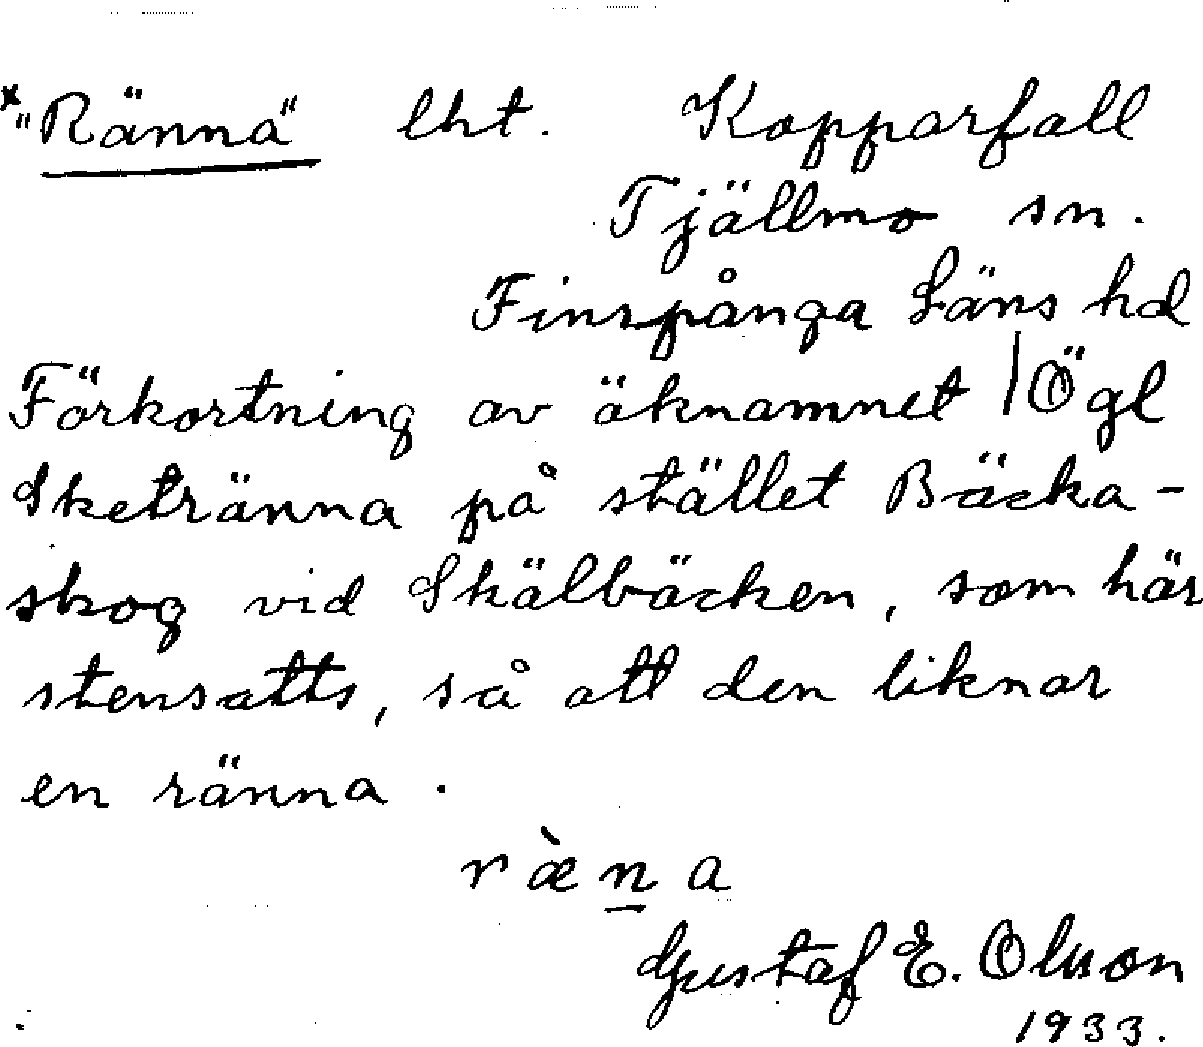 *"Ränna" lht. Kopparfall
Tjällmo sn.
Finspånga Läns hd
Förkortning av öknamnet / Ögl
Sketränna på stället Bäcka-
skog vid Skälbäcken, som här
stensatts, så att den liknar
en ränna.
ræ̀n̲a
Gustaf E. Olson
1933.